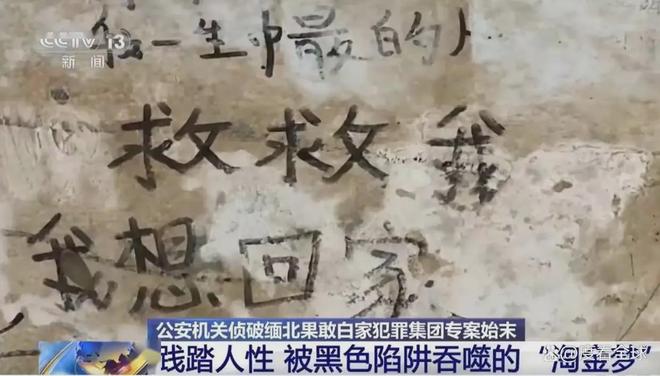 CCTV 13
新闻
一生中最的人
救救我
我想回家
公安机关侦破缅北果敢白家犯罪集团专案始末
践踏人性 被黑色陷阱吞噬的 “淘金梦
度看全球